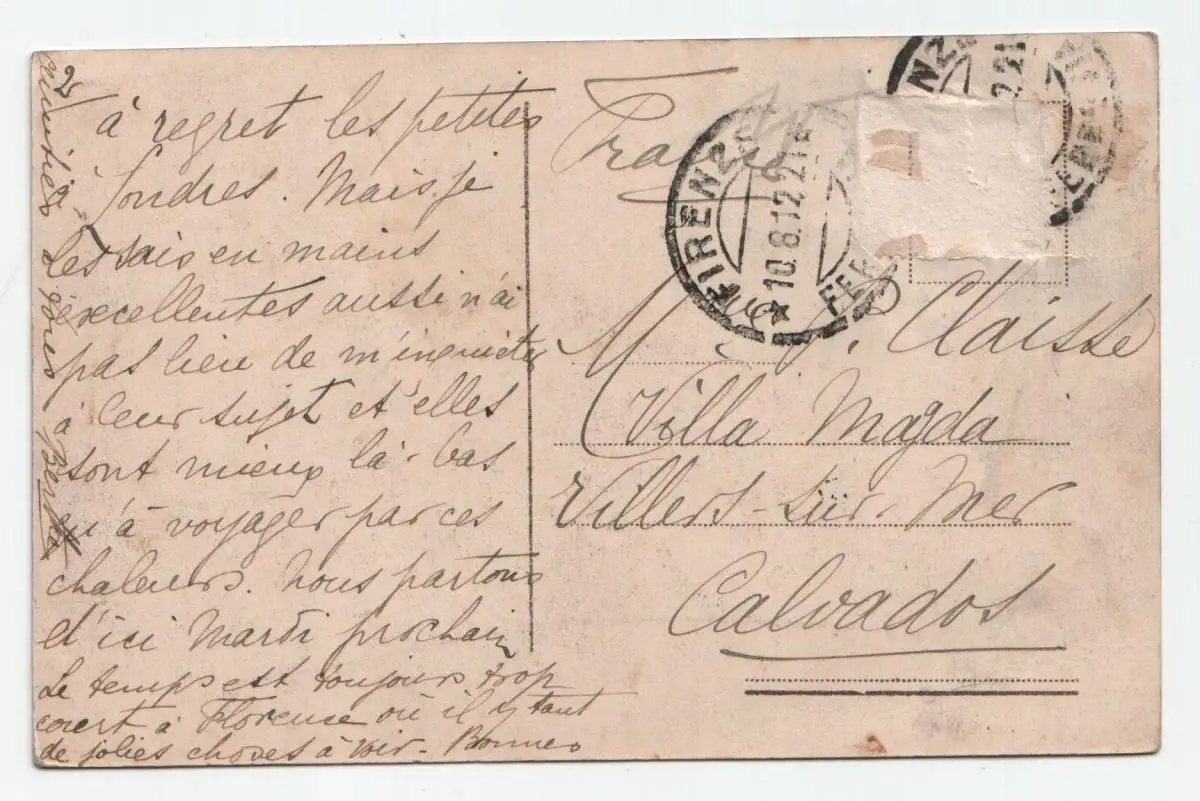 2/
à regret les petites
à Londres. Mais je
les sais en mains
excellentes aussi n'ai
pas lieu de m'inquiéter
à leur sujet et elles
sont mieux là-bas
qu'à voyager par ces
chaleurs. Nous partons
d'ici Mardi prochain
Le temps est toujours trop
court à Florence où il y tant
de jolies choses à voir - Bonnes
amitiés
France
FIRENZE
* 10.8.12 22
FERR
M V. Claisse
Villa Magda
Villers-sur-Mer
Calvados